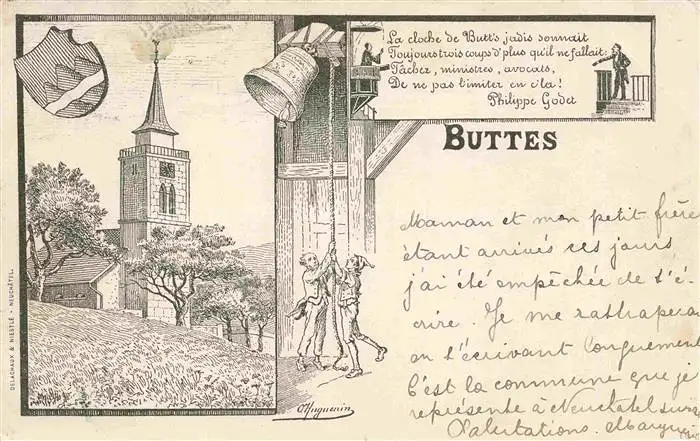 La cloche de Butt's jadis sonnait
Toujours trois coups d'plus qu'il ne fallait:
Tâchez, ministres, avocats,
De ne pas l'imiter en c'la!
Philippe Godet
BUTTES
Maman et mon petit frère
étant arrivés ces jours
j'ai été empêchée de t'é-
crire. Je me rattraperai
en t'écrivant longuement
C'est la commune que je
représente à Neuchatel
Salutations. Marguer
DELACHAUX & NIESTLÉ - NEUCHÂTEL.
O. Huguenin